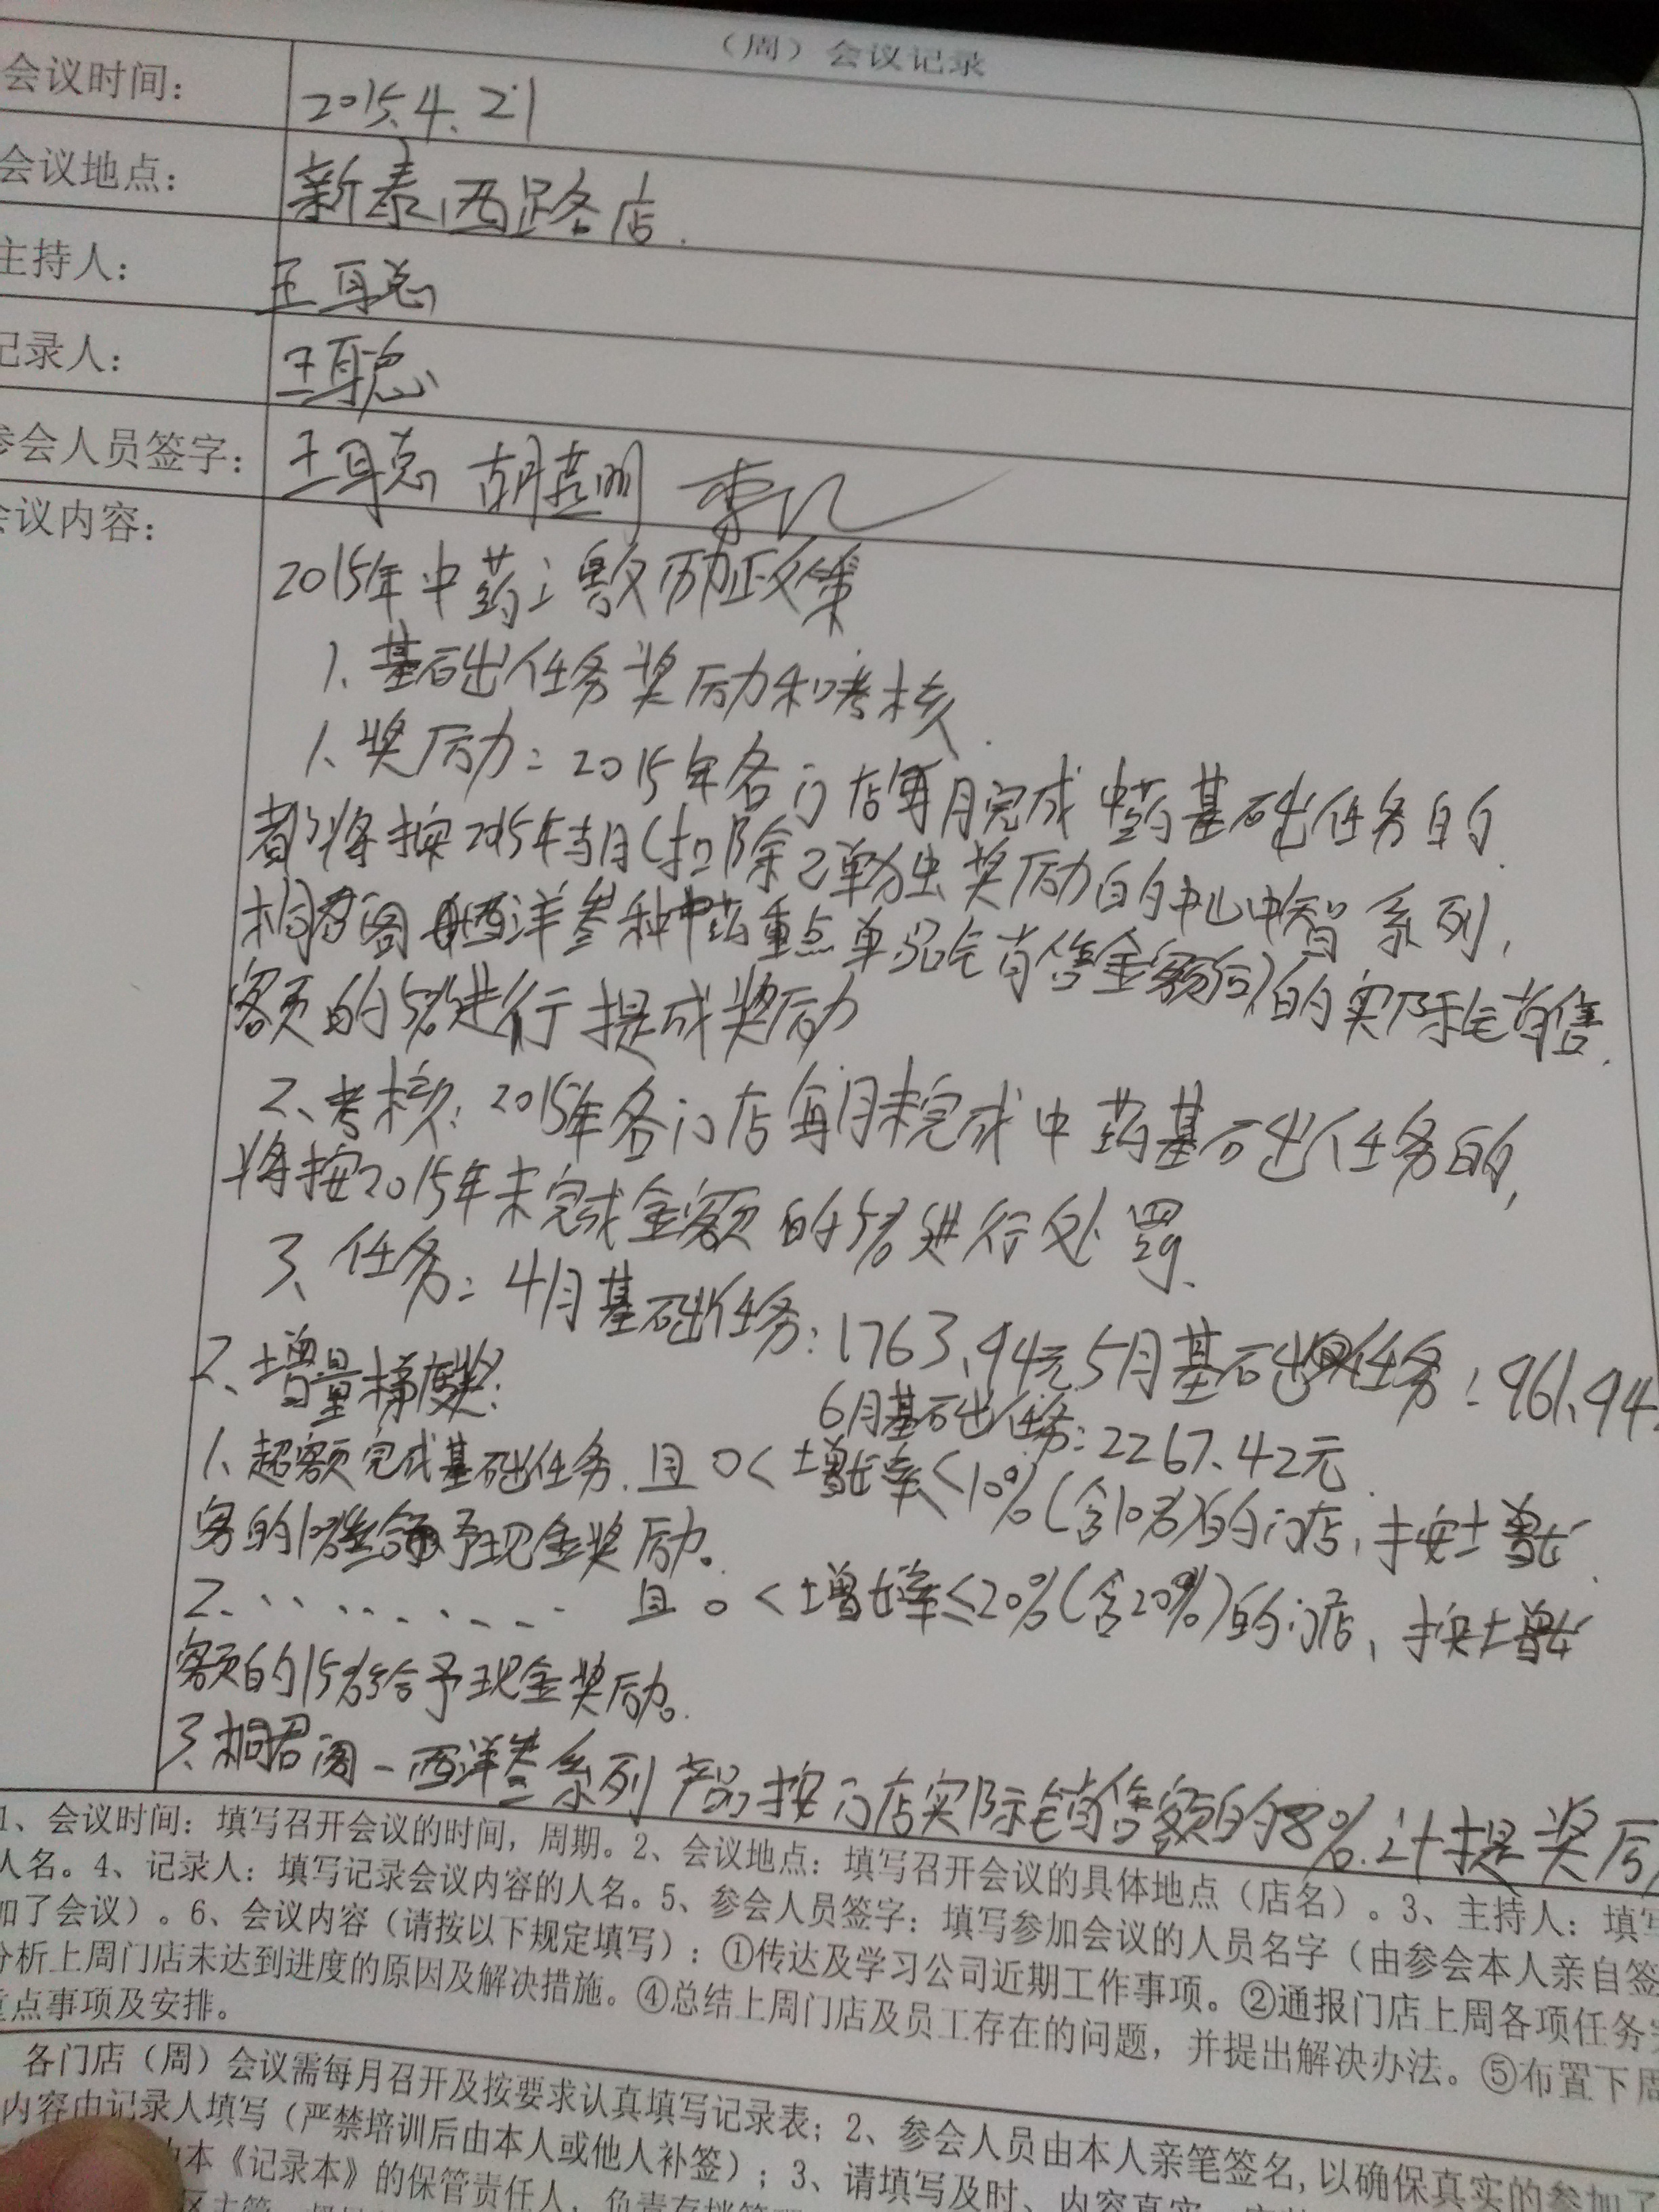 （周）会议记录
会议时间： 2015.4.21
会议地点： 新泰西路店.
主持人： 王聪
记录人： 王聪
参会人员签字： 王聪 胡燕明 李
会议内容：
2015年中药激励政策
1、基础任务奖励和考核.
1、奖励：2015年各门店每月完成中药基础任务的.
都将按2015年当月(扣除已单独奖励的中山中智系列,
桐君阁西洋参和中药重点单品销售金额后)的实际销售.
额的5%进行提成奖励
2、考核：2015年各门店每月未完成中药基础任务的,
将按2015年未完成金额的5%进行处罚.
3、任务：4月基础任务：1763.94元 5月基础任务：961.94
6月基础任务：2267.42元
2、增量梯度奖：
1、超额完成基础任务.且0<增长率<10%(含10%)的门店,按增长.
额的10%给予现金奖励。
2、………… 且0<增长率≤20%(含20%)的门店,按增长
额的15%给予现金奖励。
3、桐君阁-西洋参系列产品按门店实际销售额的8%计提奖励
1、会议时间：填写召开会议的时间，周期。2、会议地点：填写召开会议的具体地点（店名）。3、主持人：填写
人名。4、记录人：填写记录会议内容的人名。5、参会人员签字：填写参加会议的人员名字（由参会本人亲自签
加了会议）。6、会议内容（请按以下规定填写）：①传达及学习公司近期工作事项。②通报门店上周各项任务完
分析上周门店未达到进度的原因及解决措施。④总结上周门店及员工存在的问题，并提出解决办法。⑤布置下周
重点事项及安排。
各门店（周）会议需每月召开及按要求认真填写记录表；2、参会人员由本人亲笔签名,以确保真实的参加了
内容由记录人填写（严禁培训后由本人或他人补签）；3、请填写及时、内容真实
本《记录本》的保管责任人，负责存档管